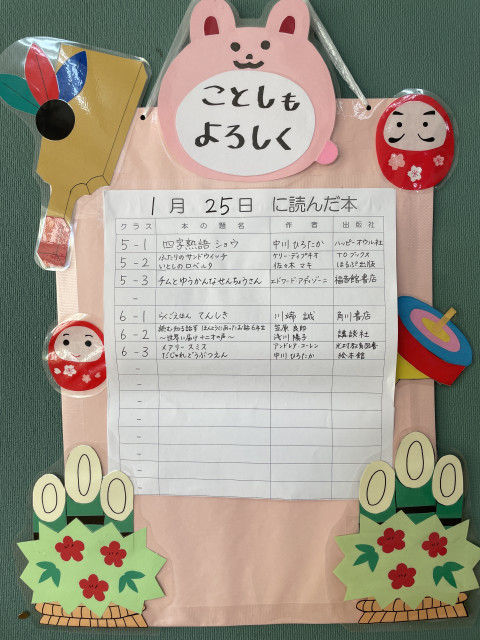 ことしも
よろしく
1月 25日 に読んだ本
クラス 本の題名 作者 出版社
5-1 四字熟語ショウ 中川ひろたか ハッピーオウル社
5-2 ふたりのサンドウィッチ ケリー・ディプキオ TOブックス
いとしのロベルタ 佐々木マキ ほるぷ出版
5-3 チムとゆうかんなせんちょうさん エドワード・アディゾーニ 福音館書店
-
6-1 らくごえほん てんしき 川端 誠 角川書店
6-2 読む知る話す ほんとうにあったお話6年生 笠原良郎 講談社
〜世界に届け 十二才の声〜 浅川陽子
6-3 メアリー・スミス アンドレア・ユーレン 光村教育図書
だじゃれどうぶつえん 中川ひろたか 絵本館
-
-
-
-
-
-
-